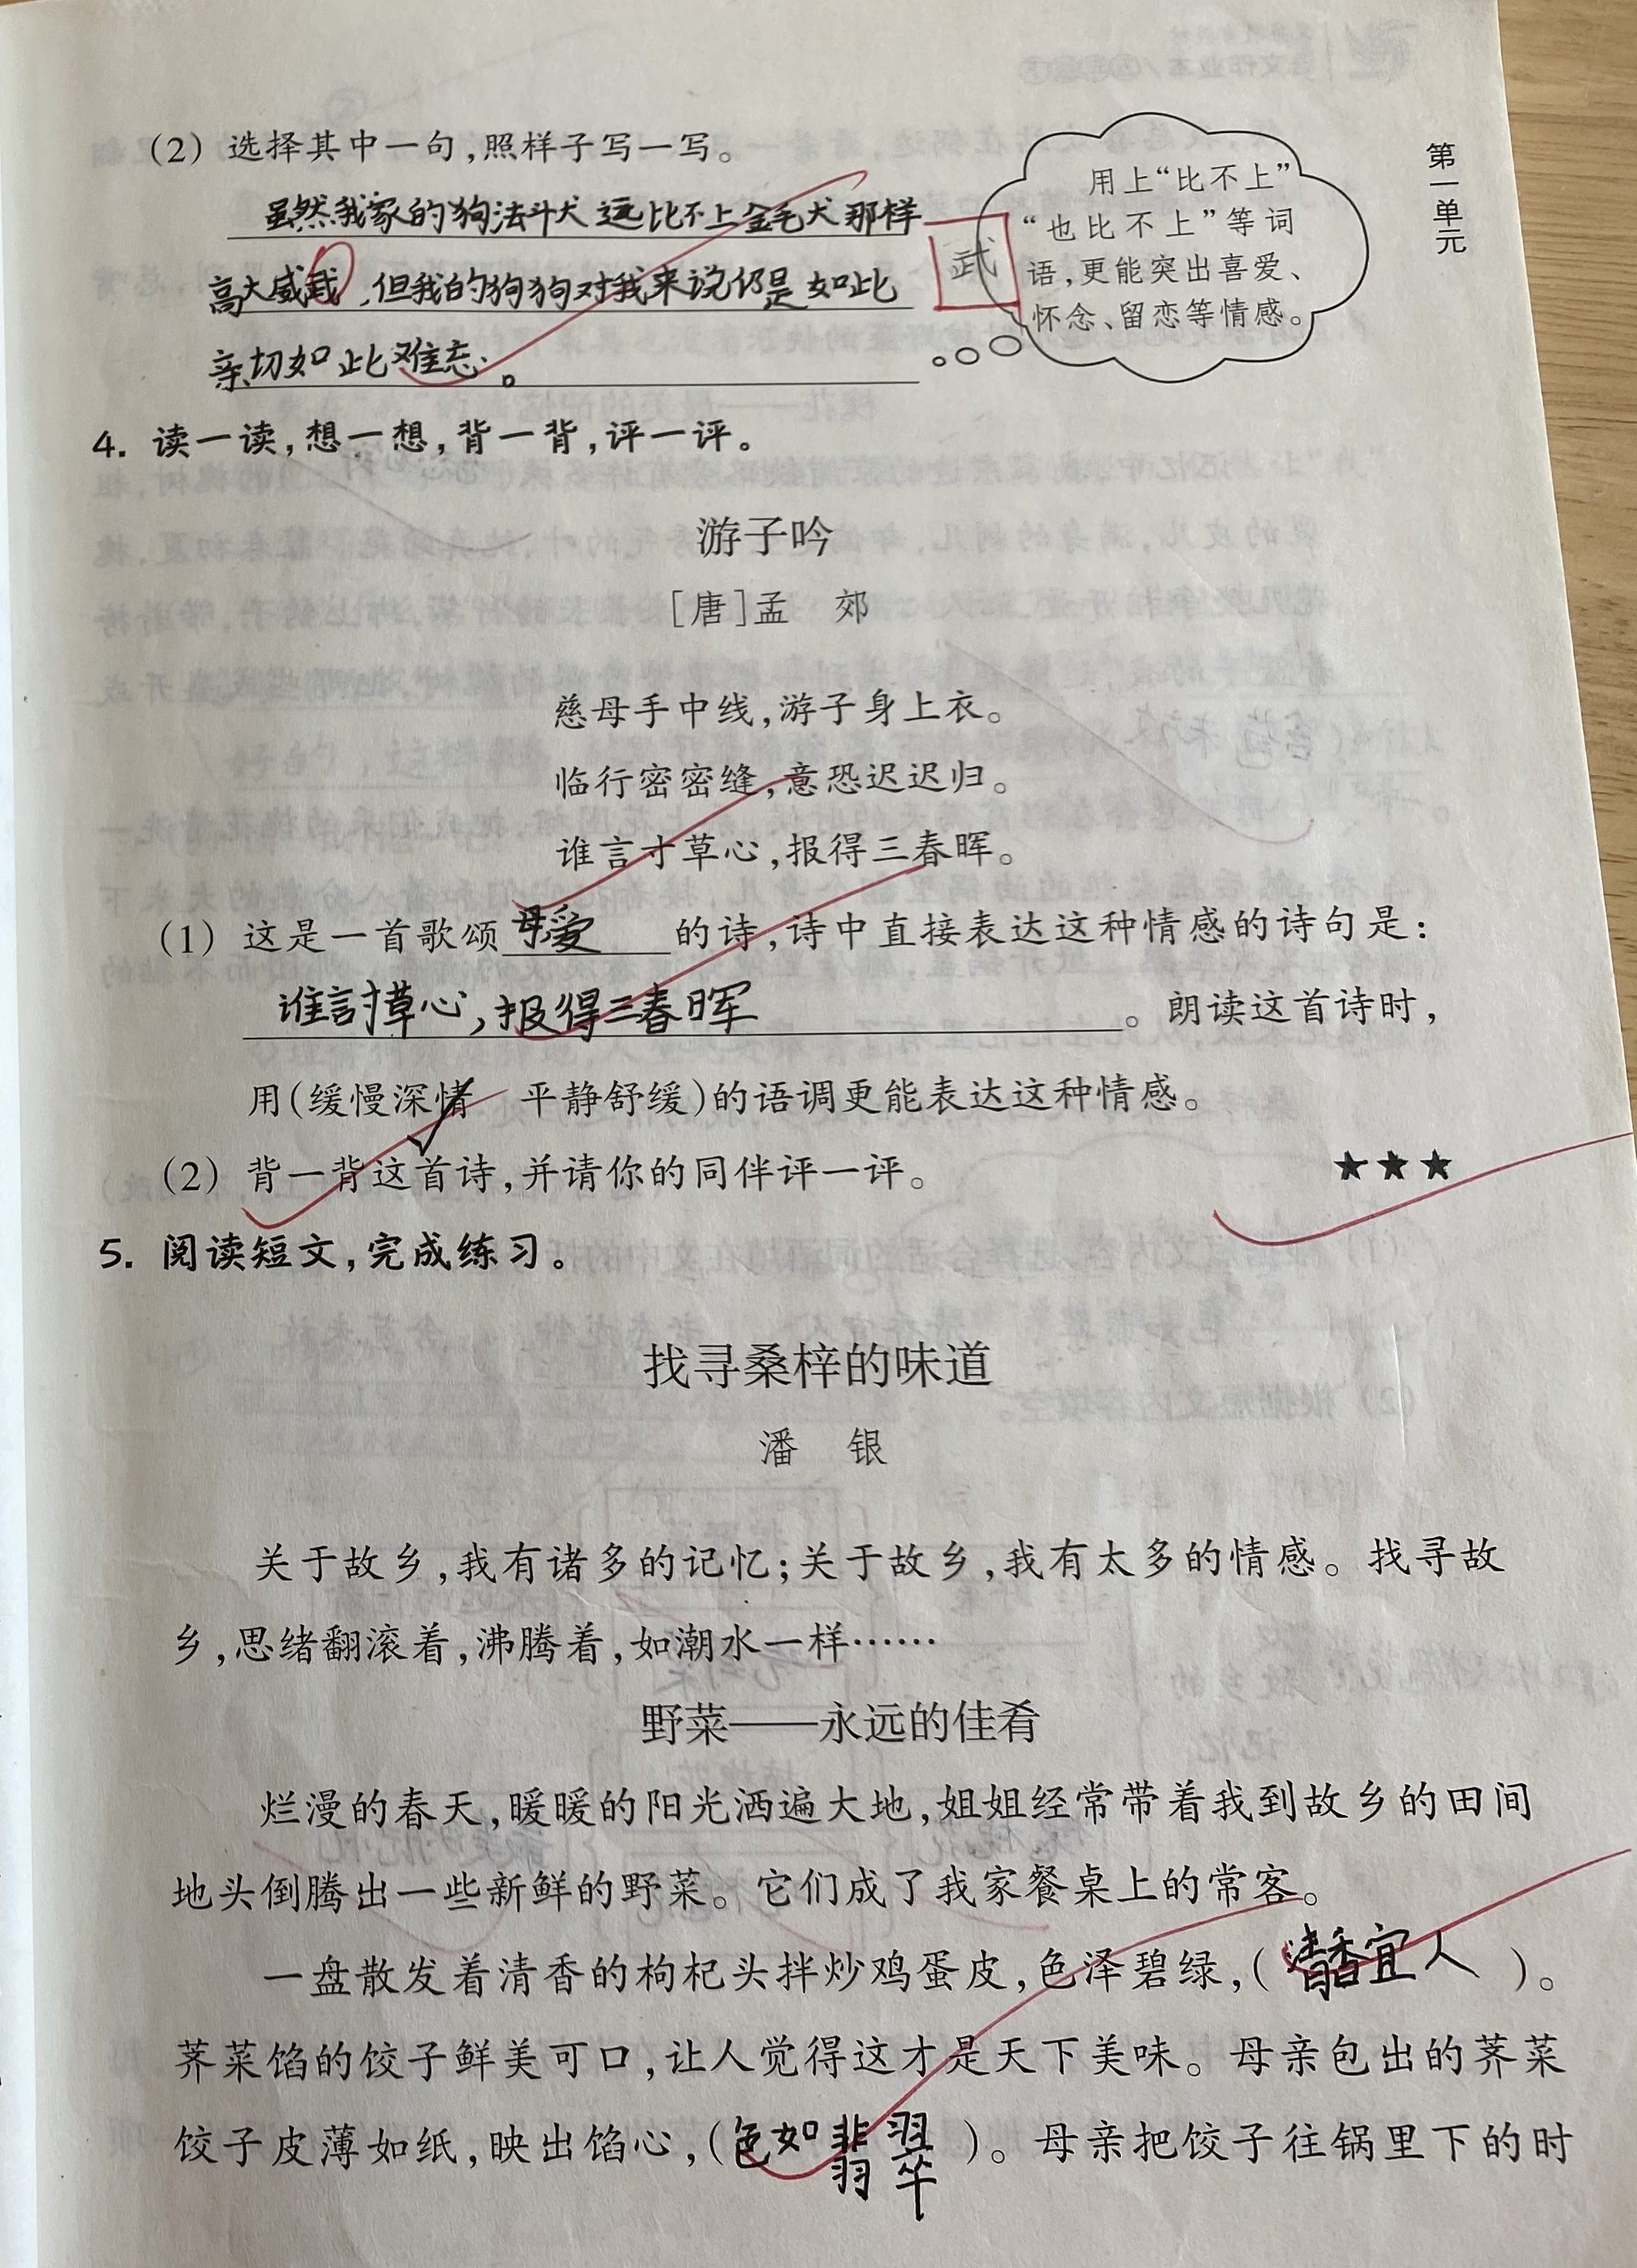 第一单元
(2) 选择其中一句,照样子写一写。
虽然我家的狗法斗犬远比不上金毛犬那样
高大威武,但我的狗狗对我来说仍是如此
亲切如此难忘。
武
用上“比不上”
“也比不上”等词
语,更能突出喜爱、
怀念、留恋等情感。
4. 读一读,想一想,背一背,评一评。
游子吟
[唐]孟 郊
慈母手中线,游子身上衣。
临行密密缝,意恐迟迟归。
谁言寸草心,报得三春晖。
(1) 这是一首歌颂母爱的诗,诗中直接表达这种情感的诗句是:
谁言寸草心,报得三春晖。朗读这首诗时,
用(缓慢深情 平静舒缓)的语调更能表达这种情感。
(2) 背一背这首诗,并请你的同伴评一评。 ★★★
5. 阅读短文,完成练习。
找寻桑梓的味道
潘 银
关于故乡,我有诸多的记忆;关于故乡,我有太多的情感。找寻故
乡,思绪翻滚着,沸腾着,如潮水一样……
野菜——永远的佳肴
烂漫的春天,暖暖的阳光洒遍大地,姐姐经常带着我到故乡的田间
地头倒腾出一些新鲜的野菜。它们成了我家餐桌上的常客。
一盘散发着清香的枸杞头拌炒鸡蛋皮,色泽碧绿,(清香宜人)。
荠菜馅的饺子鲜美可口,让人觉得这才是天下美味。母亲包出的荠菜
饺子皮薄如纸,映出馅心,(色如翡翠)。母亲把饺子往锅里下的时